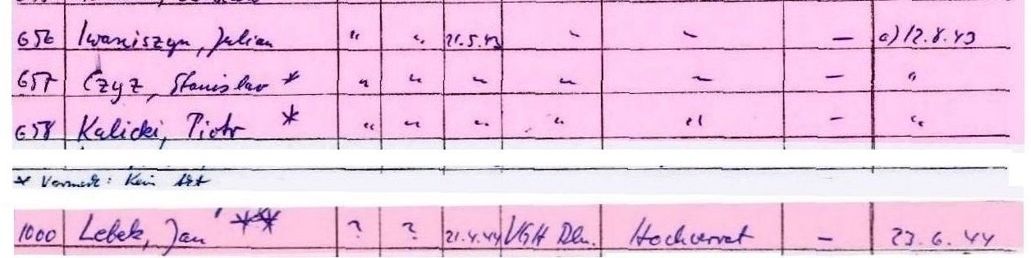 656 Iwaniszyn, Julian " " 21.5.43 " " — a) 12.8.43
657 Czyz, Stanislav * " " " " " — "
658 Kalicki, Piotr * " " " " " — "
* Vermerk: Kein Art
1000 Lebek, Jan ** ? ? 21.4.44 VGH Dln. Hochverrat — 23.6.44